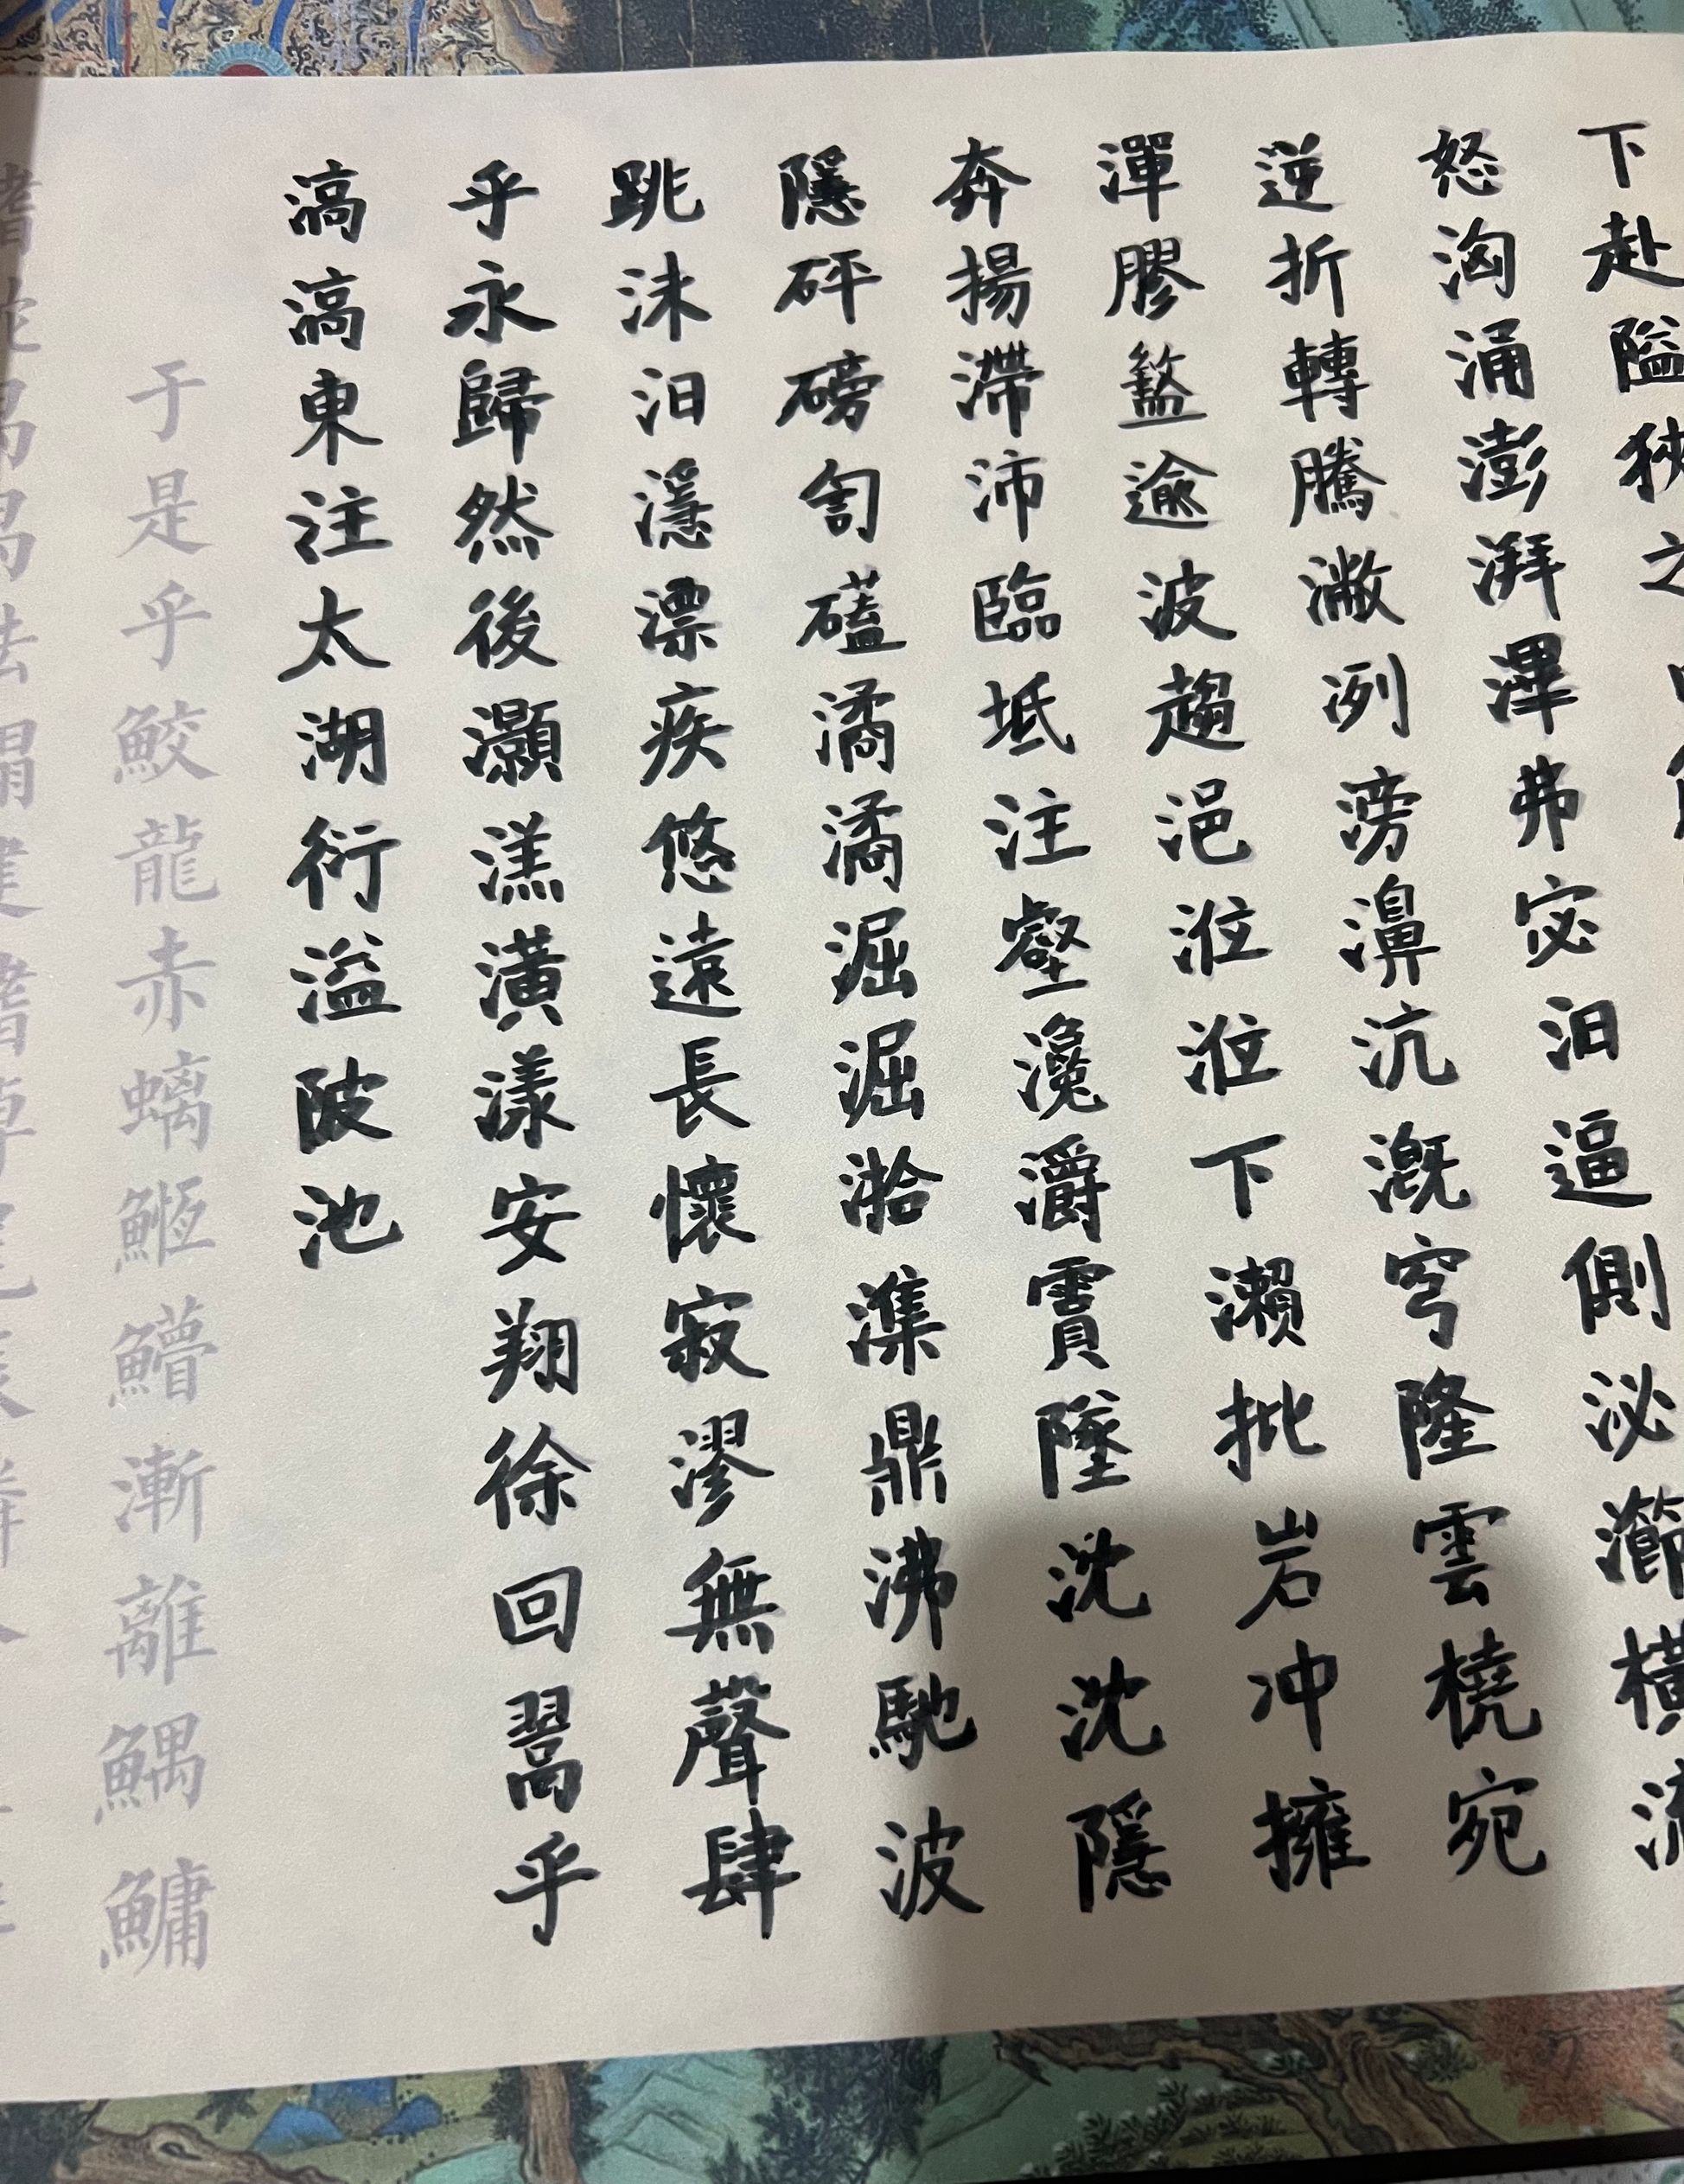 下赴隘狹之
怒洶涌澎湃滭弗宓汨逼側泌瀄橫流
逆折轉騰潎洌滂濞沆溉穹隆雲橈宛
潬膠盭逾波趨浥涖涖下瀨批岩冲擁
奔揚滯沛臨坻注壑瀺灂霣墜沈沈隱
隱砰磅訇磕潏潏淈淈湁潗鼎沸馳波
跳沫汩濦漂疾悠遠長懷寂漻無聲肆
乎永歸然後灝溔潢漾安翔徐回翯乎
滈滈東注太湖衍溢陂池
于是乎鮫龍赤螭䱭䲛漸離鰅鱅